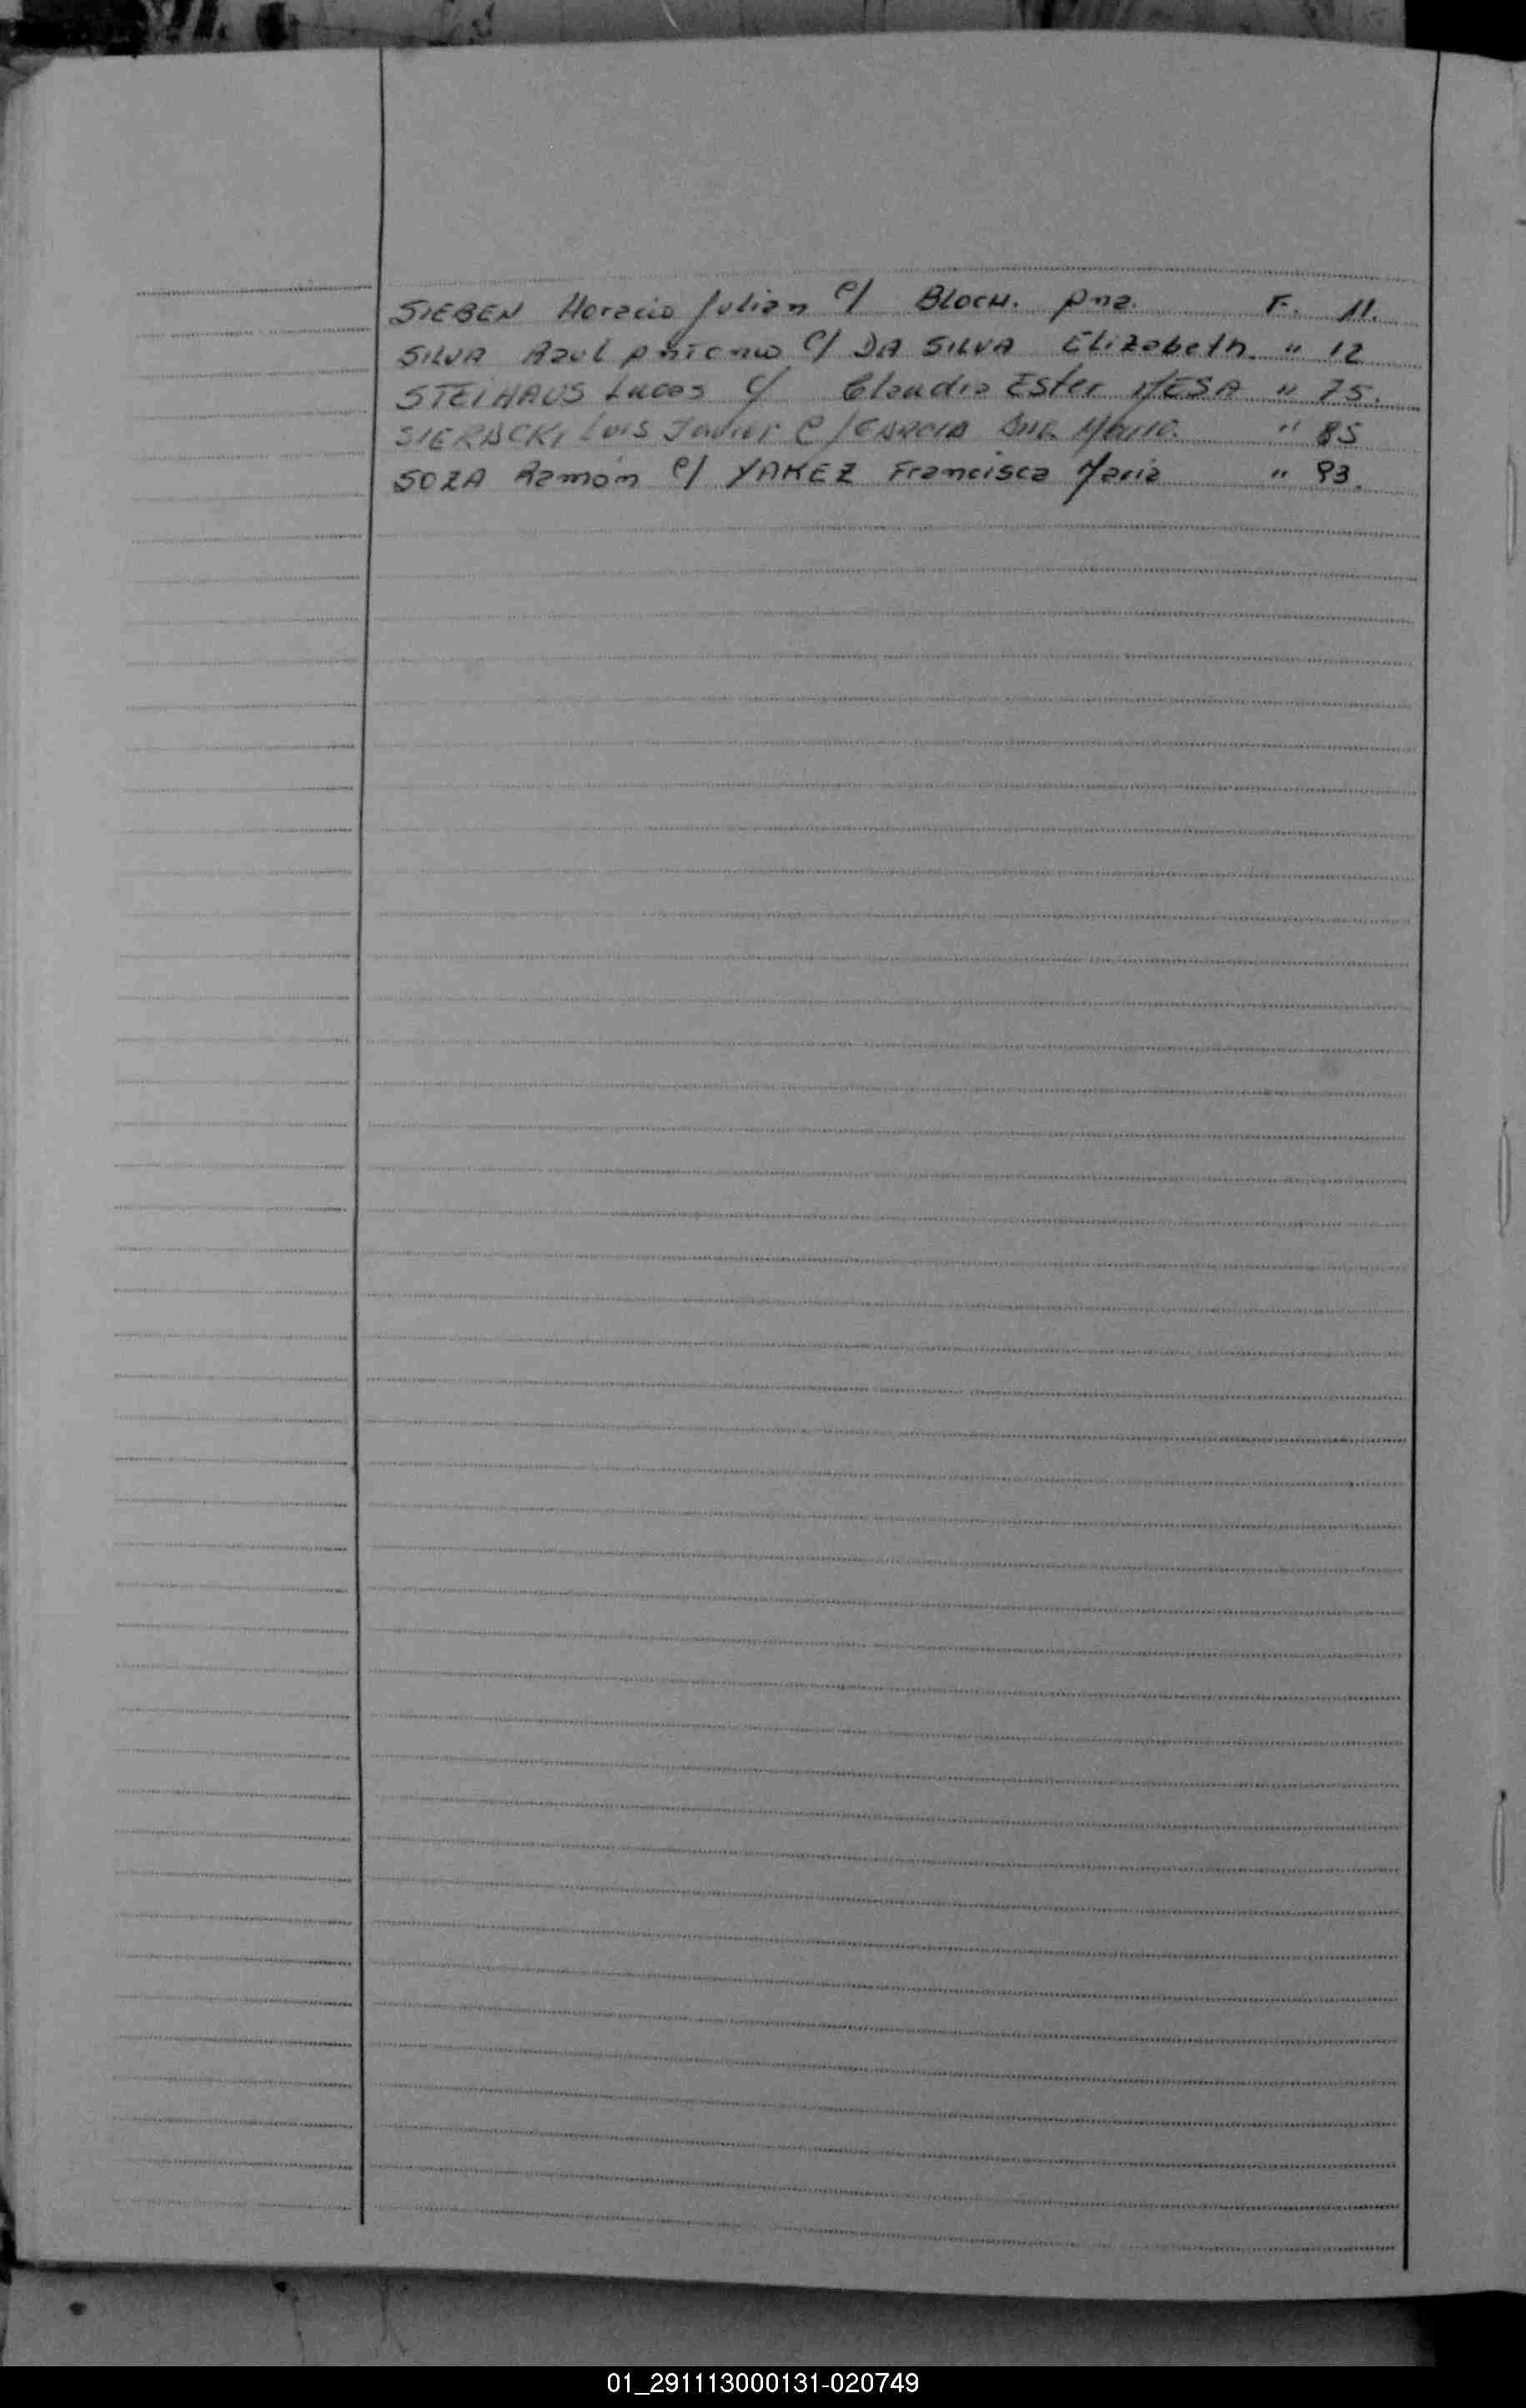 SIEBEN Horacio Julian c/ BLOCH. Ana. F. 11.
SILVA Raul Antonio c/ DA SILVA Elizabeth. " 12
STEIHAUS Lucas c/ Claudia Ester MESA " 75.
SIERACKI Luis Javier c/ GARCIA Ana Maria. " 85
SOZA Ramón c/ YAKEZ Francisca Maria " 93.
01_291113000131-020749